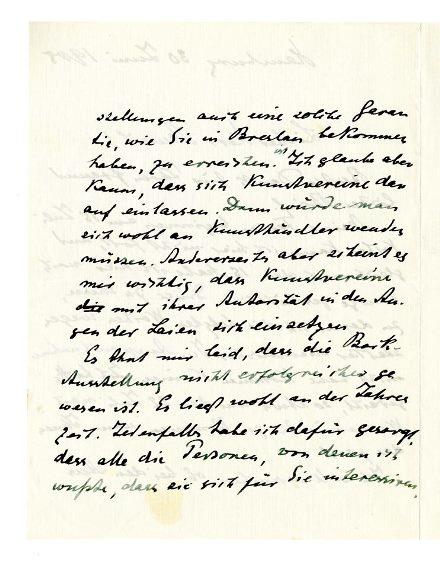 stellungen auch eine solche Garan
tie, wie Sie in Breslau bekommen
haben, zu erreichen. ist Ich glaube aber
kaum, dass sich Kunstvereine dar
auf einlassen. Dann würde man
sich wohl an Kunsthändler wenden
müssen. Andererseits aber scheint es
mir wichtig, dass Kunstvereine
die mit ihrer Autorität in den Au-
gen der Laien sich einsetzen.
Es thut mir leid, dass die Bark-
Ausstellung nicht erfolgreicher ge
wesen ist. Es liegt wohl an der Jahres
zeit. Jedenfalls habe ich dafür gesorgt,
dass alle die Personen, von denen ich
wußte, dass sie sich für Sie interessiren,
Hamburg 30 Juni 1905